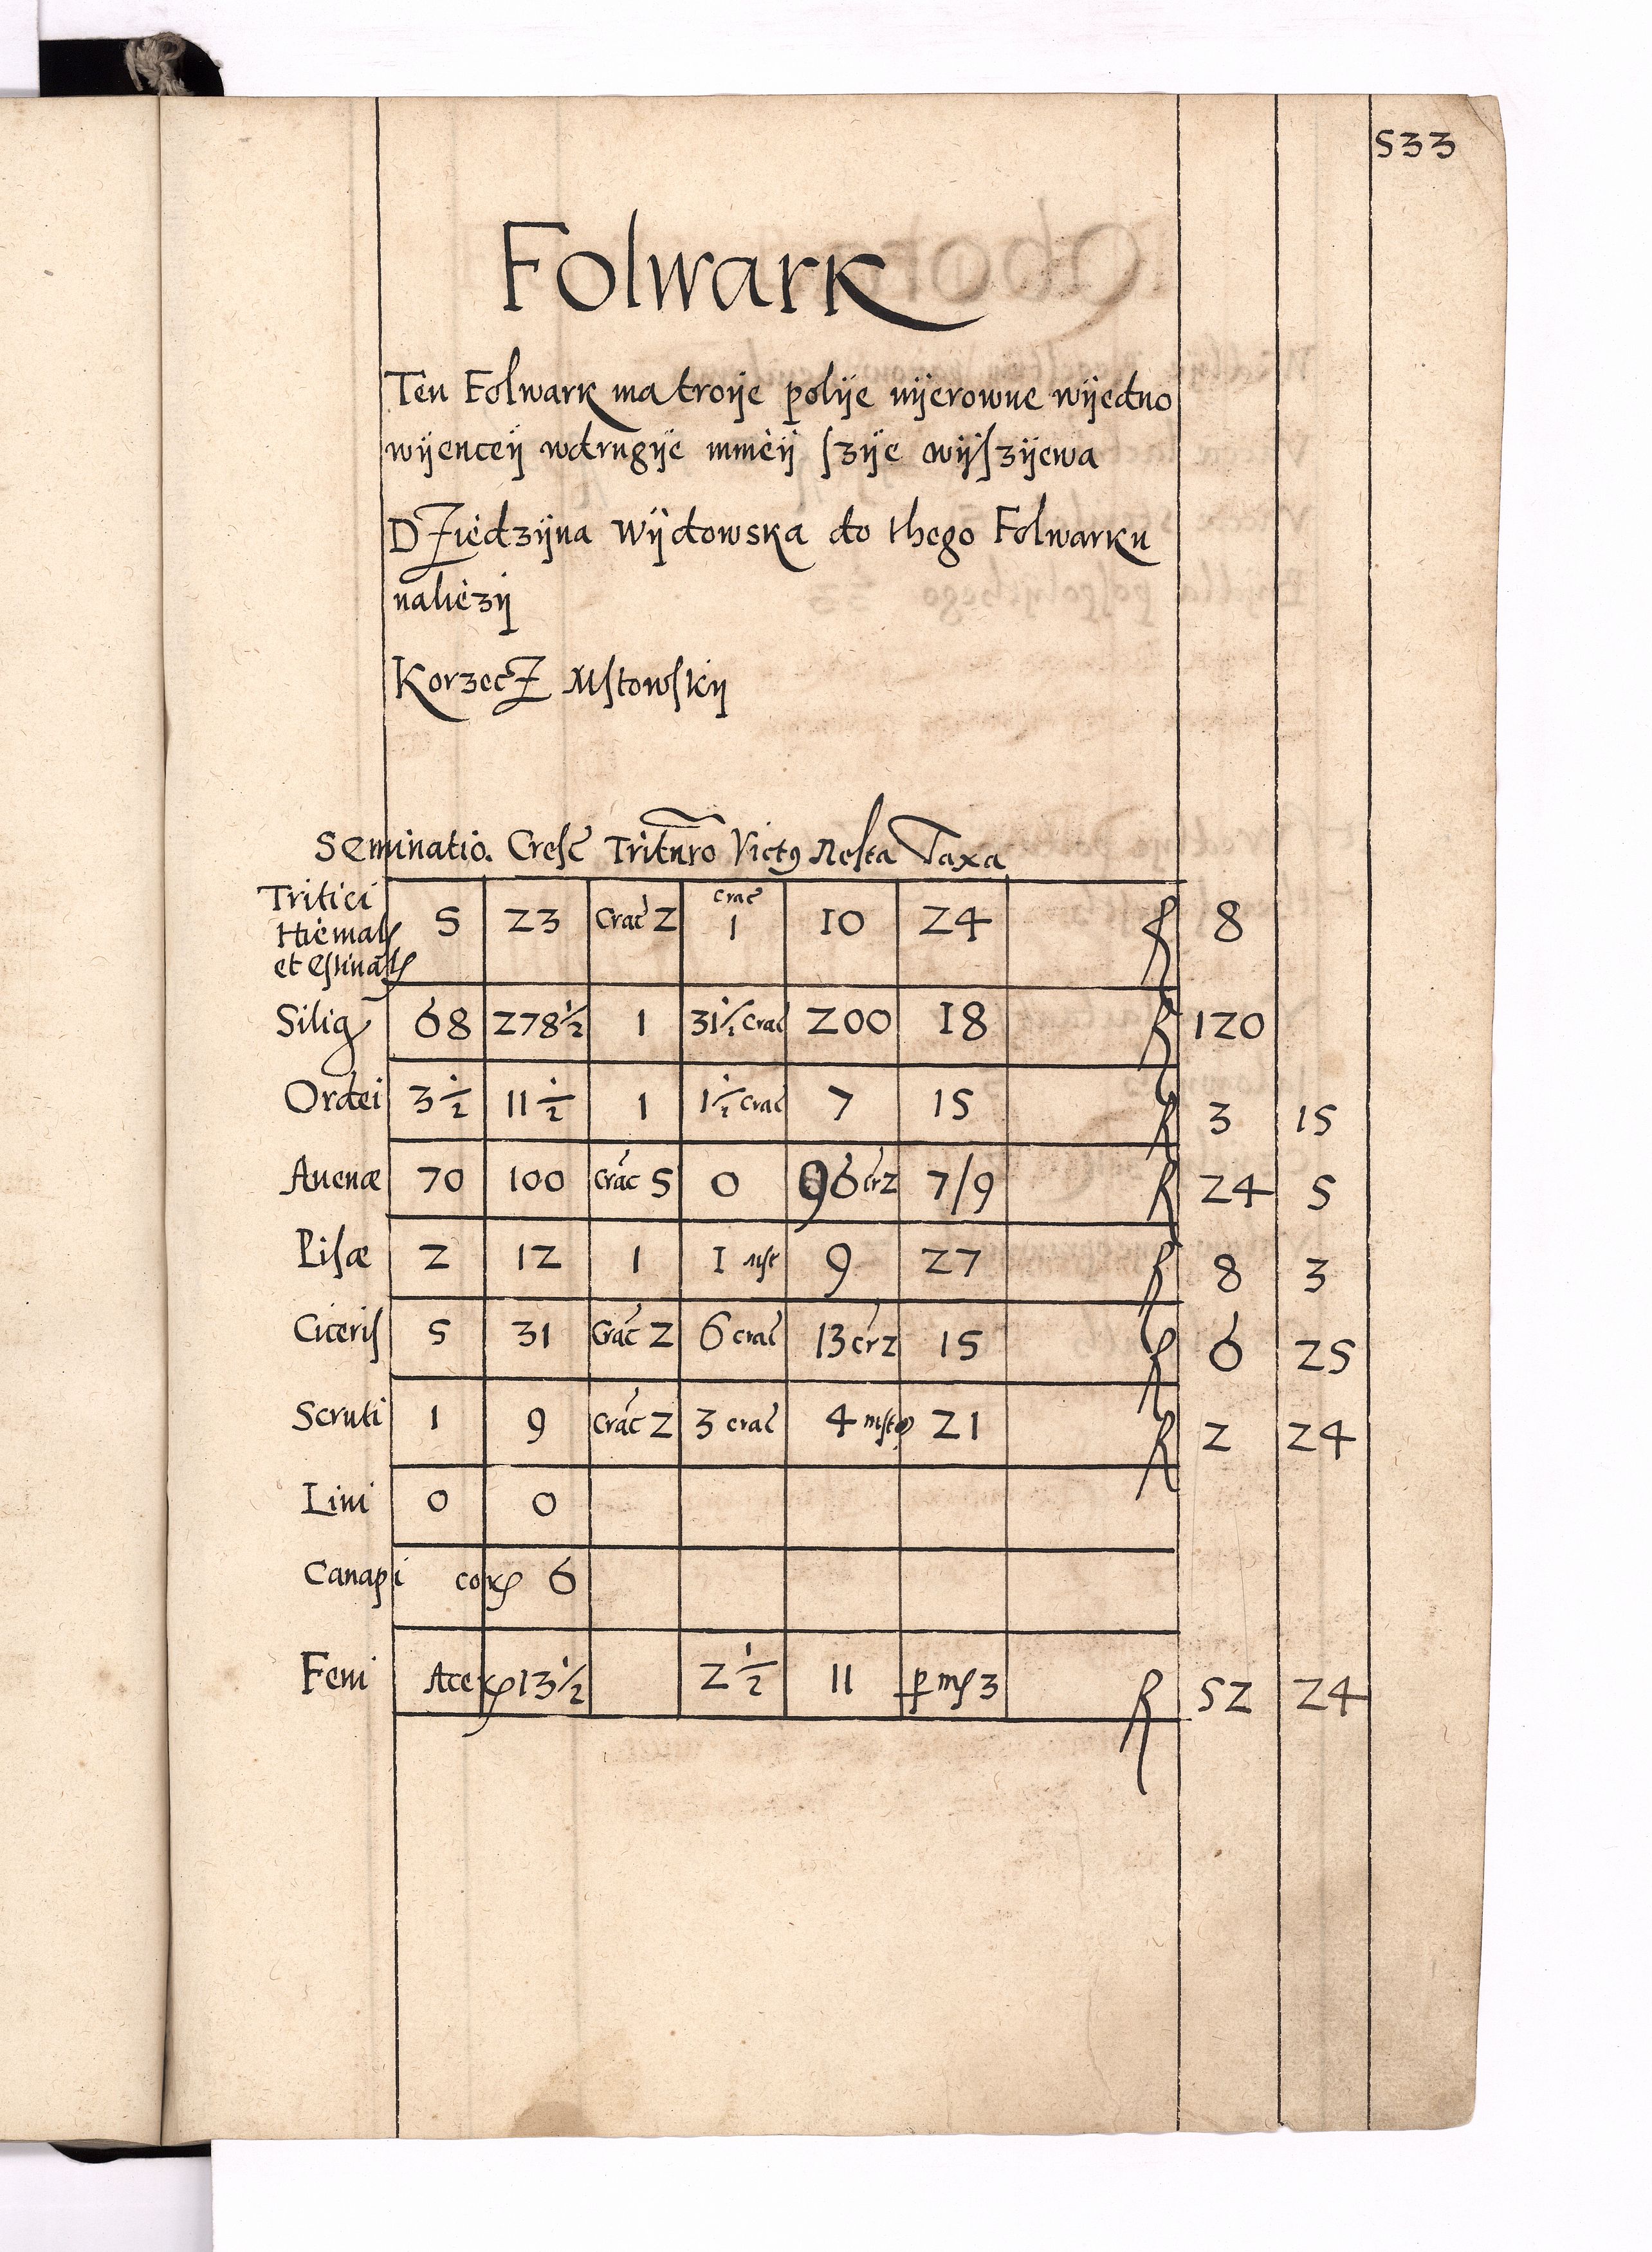 533
Folwark
Ten Folwark ma troije polije nijerowne wijedno
wijenceij wdrugije mnieij szije wijszijewa
Dziedzijna Wijdowska do thego Folwarku
naliezij
Korzecz Mstowskij
Seminatio. Cresc Trituro Victus Resta Taxa
Tritici Hiemal et estival 5 23 Crac 2 crac 1 10 24 f 8
Silig 68 278 1/2 1 31 1/2 crac 200 18 f 120
Ordei 3 1/2 11 1/2 1 1 1/2 crac 7 15 f 3 15
Auenæ 70 100 Crac 5 0 96 cr 2 7/9 f 24 5
Pisæ 2 12 1 1 mst 9 27 f 8 3
Ciceris 5 31 Crac 2 6 crac 13 cr 2 15 f 6 25
Scruti 1 9 Crac 2 3 crac 4 mst 21 f 2 24
Lini 0 0
Canapi cor 6
Feni Acer 13 1/2 2 1/2 11 p m 3 f 52 24